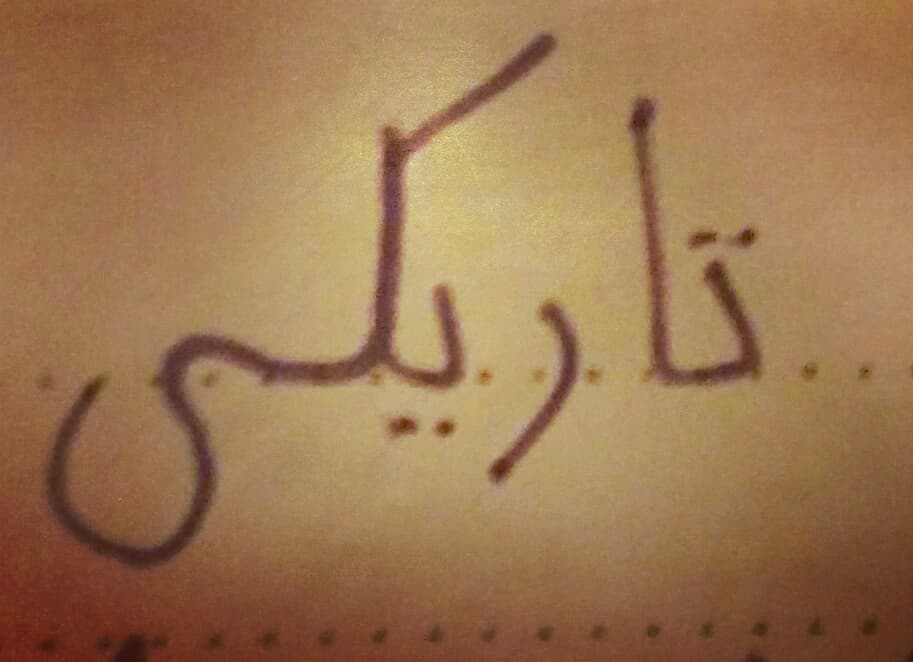 تاریکی